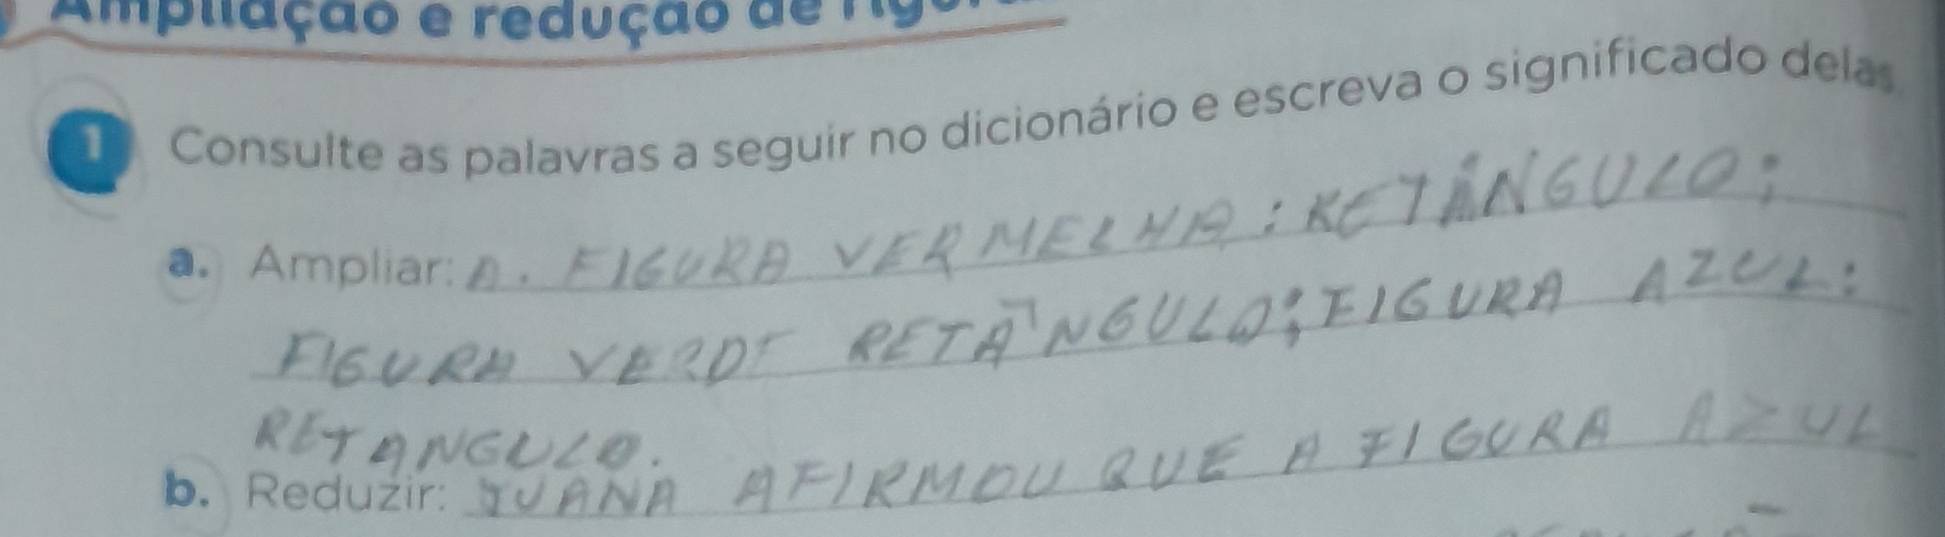 Ampliação e redução de
1 Consulte as palavras a seguir no dicionário e escreva o significado delas
a. Ampliar: A. FIGURA VERMELHA: RETÂNGULO;
FIGURA VERDE RETÂNGULO; FIGURA AZUL:
RETANGULO.
b. Reduzir: JUANA AFIRMOU QUE A FIGURA AZUL